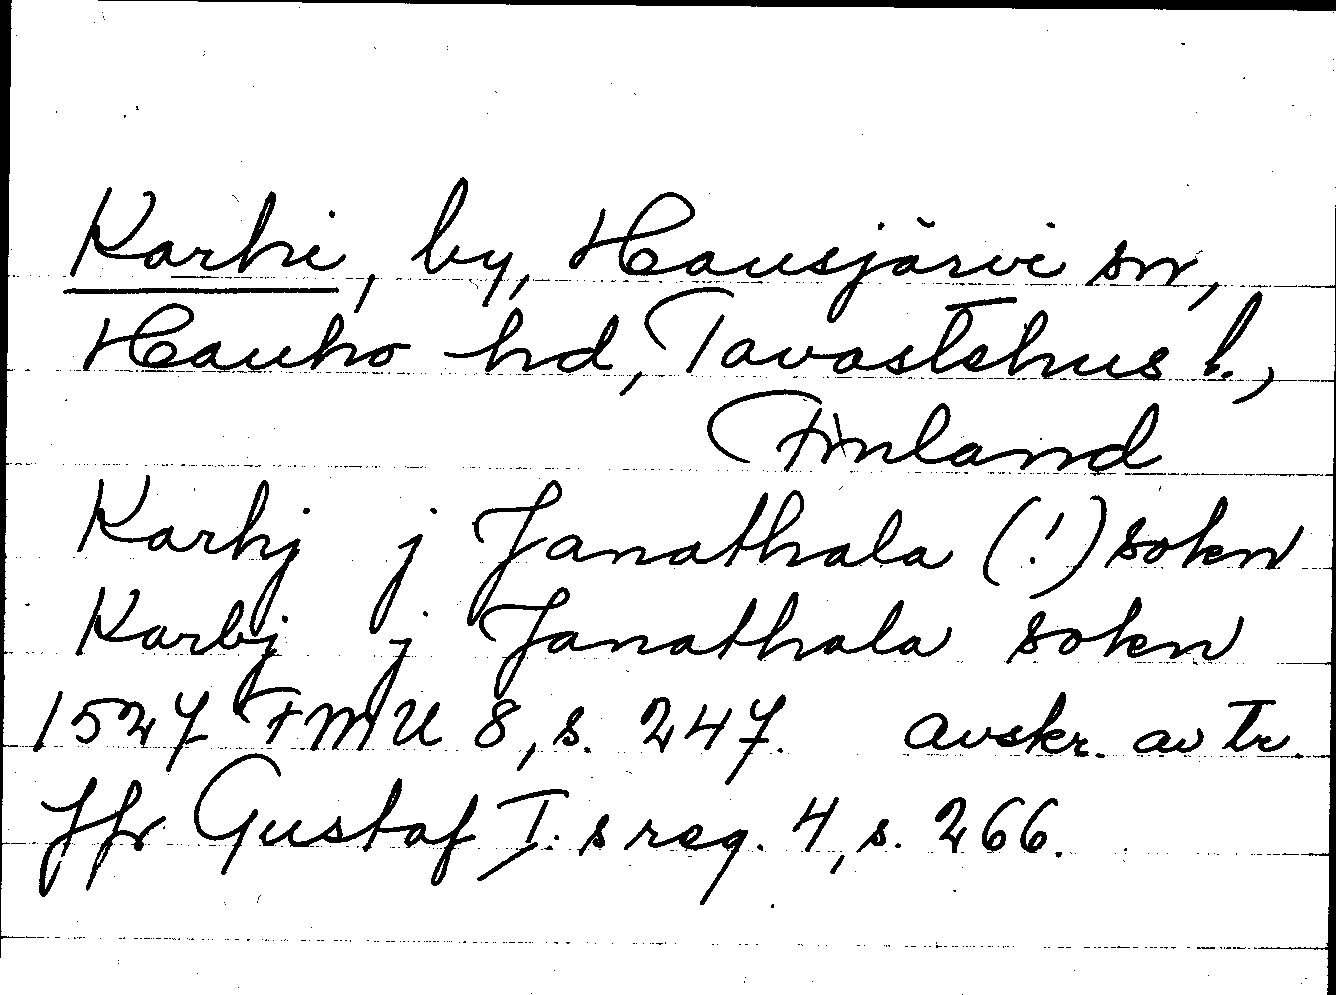 Karhi, by, Hausjärvi sn,
Hauho hd, Tavastehus l.,
Finland
Karhj j Janathala (!) sokn
Karbj j Janathala sokn
1527 FMU 8, s. 247. avskr. av tr.
Jfr Gustaf I:s reg. 4, s. 266.